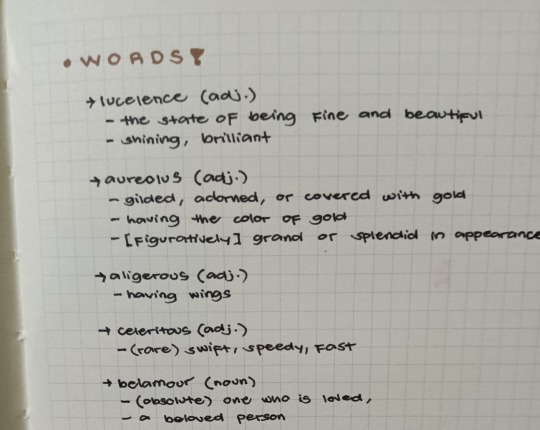 • WORDS!
→ lucelence (adj.)
- the state of being fine and beautiful
- shining, brilliant
→ aureolus (adj.)
- gilded, adorned, or covered with gold
- having the color of gold
- [figuratively] grand or splendid in appearance
→ aligerous (adj.)
- having wings
→ celeritous (adj.)
- (rare) swift, speedy, fast
→ belamour (noun)
- (obsolute) one who is loved,
- a beloved person